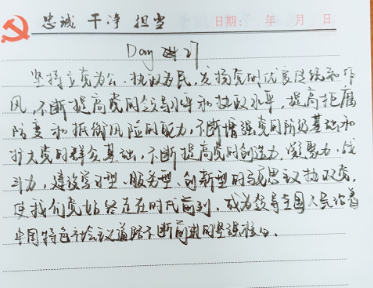 忠诚 干净 担当
日期： 年 月 日
Day 27
坚持立党为公、执政为民,发扬党的优良传统和作
风,不断提高党的领导水平和执政水平,提高拒腐
防变和抵御风险的能力,不断增强党的阶级基础和
扩大党的群众基础,不断提高党的创造力、凝聚力、战
斗力,建设学习型、服务型、创新型的马克思主义执政党,
使我们党始终走在时代前列,成为领导全国人民沿着
中国特色社会主义道路不断前进的坚强核心。